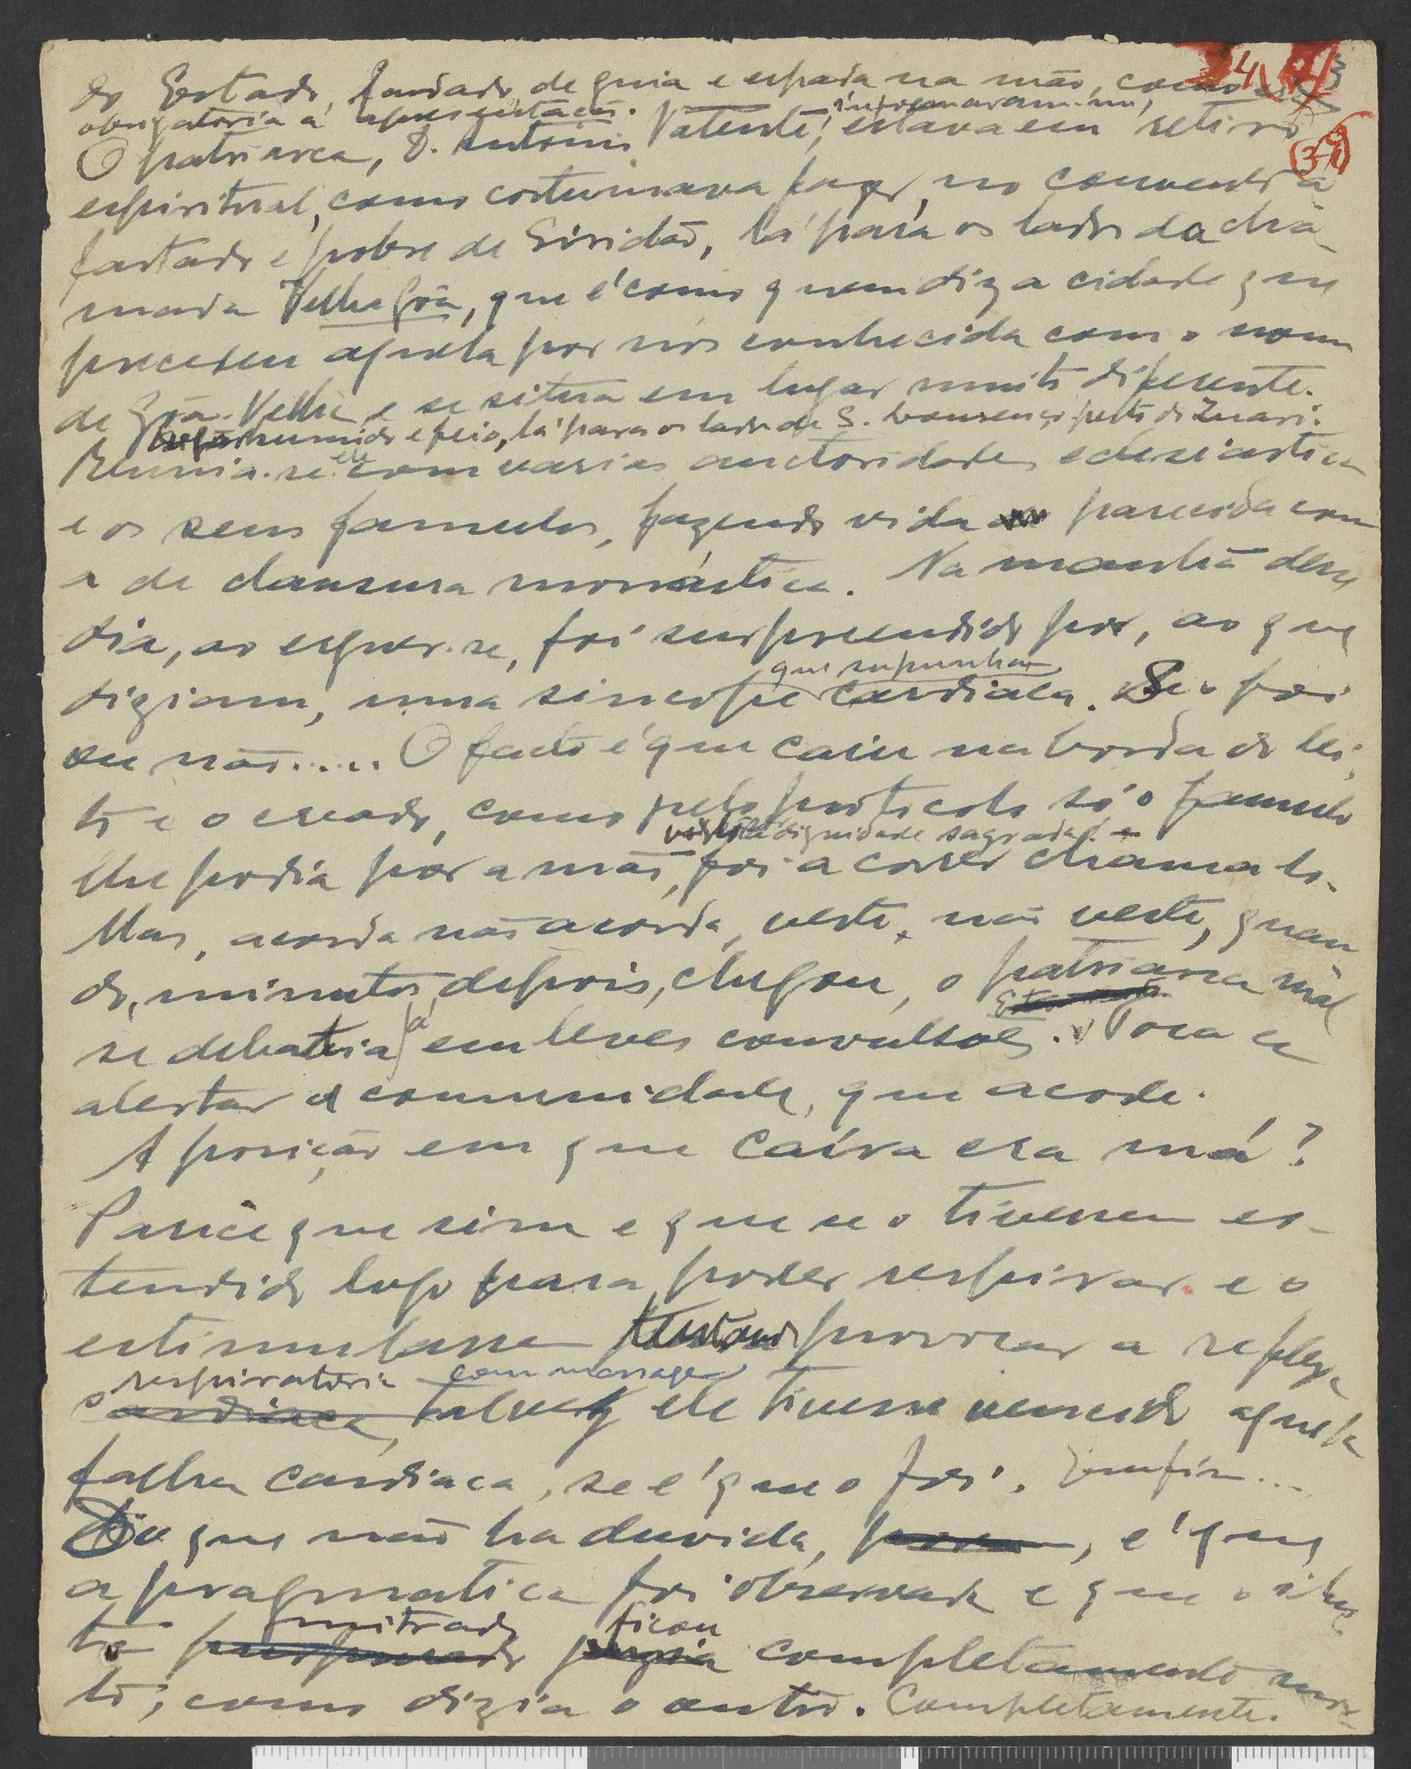 do Estado, fardado, de guia e espada na mão, como
obrigatoria á apresentação.
O patriarca, D. Antonio Valente, informaram-me, estava em retiro
espiritual, como costumava fazer, no convento a
fastado e pobre de Siridão, lá para os lados da cha-
mada Velha Gôa, que é como quem diz a cidade que
precedeu aquela por nós conhecida com o nome
de Gôa-Velha e se situa em lugar muito diferente.
humido e feio, lá para os lados de S. Lourenço perto do Zuari.
Reunia-se ele com varias auctoridades eclesiasticas
e os seus famulos, fazendo vida parecida com
a de clausura monástica. Na manhã desse
dia, ao erguer-se, foi surpreendido por, ao que
que supunham
diziam, uma sincope cardiaca. Se o foi
ou não..... O facto é que caiu na borda do lei-
to e o creado, como pelo protocolo só o famulo
dignidade sagrada
lhe podia pôr a mão, foi a correr chama-lo.
Mas, acorda não acorda, veste, não veste, quan-
do, minutos depois, chegou, o patriarca mal
se debatia já em leves convulsões. Toca a
alertar a comunidade, que acode.
A posição em que caíra era má?
Parece que sim e que se o tivessem es-
tendido logo para poder respirar e o
estimulassem provocar a reflexa
respiratoria com massagem
cardiaca, talvez ele tivesse vencido aquela
falha cardiaca, se é que o foi. Emfim...
Do que não ha duvida, é que
a pragmatica foi observada e que o ilus-
mitrado ficou
tre purpurado completamente mor-
to, como dizia o outro. Completamente.